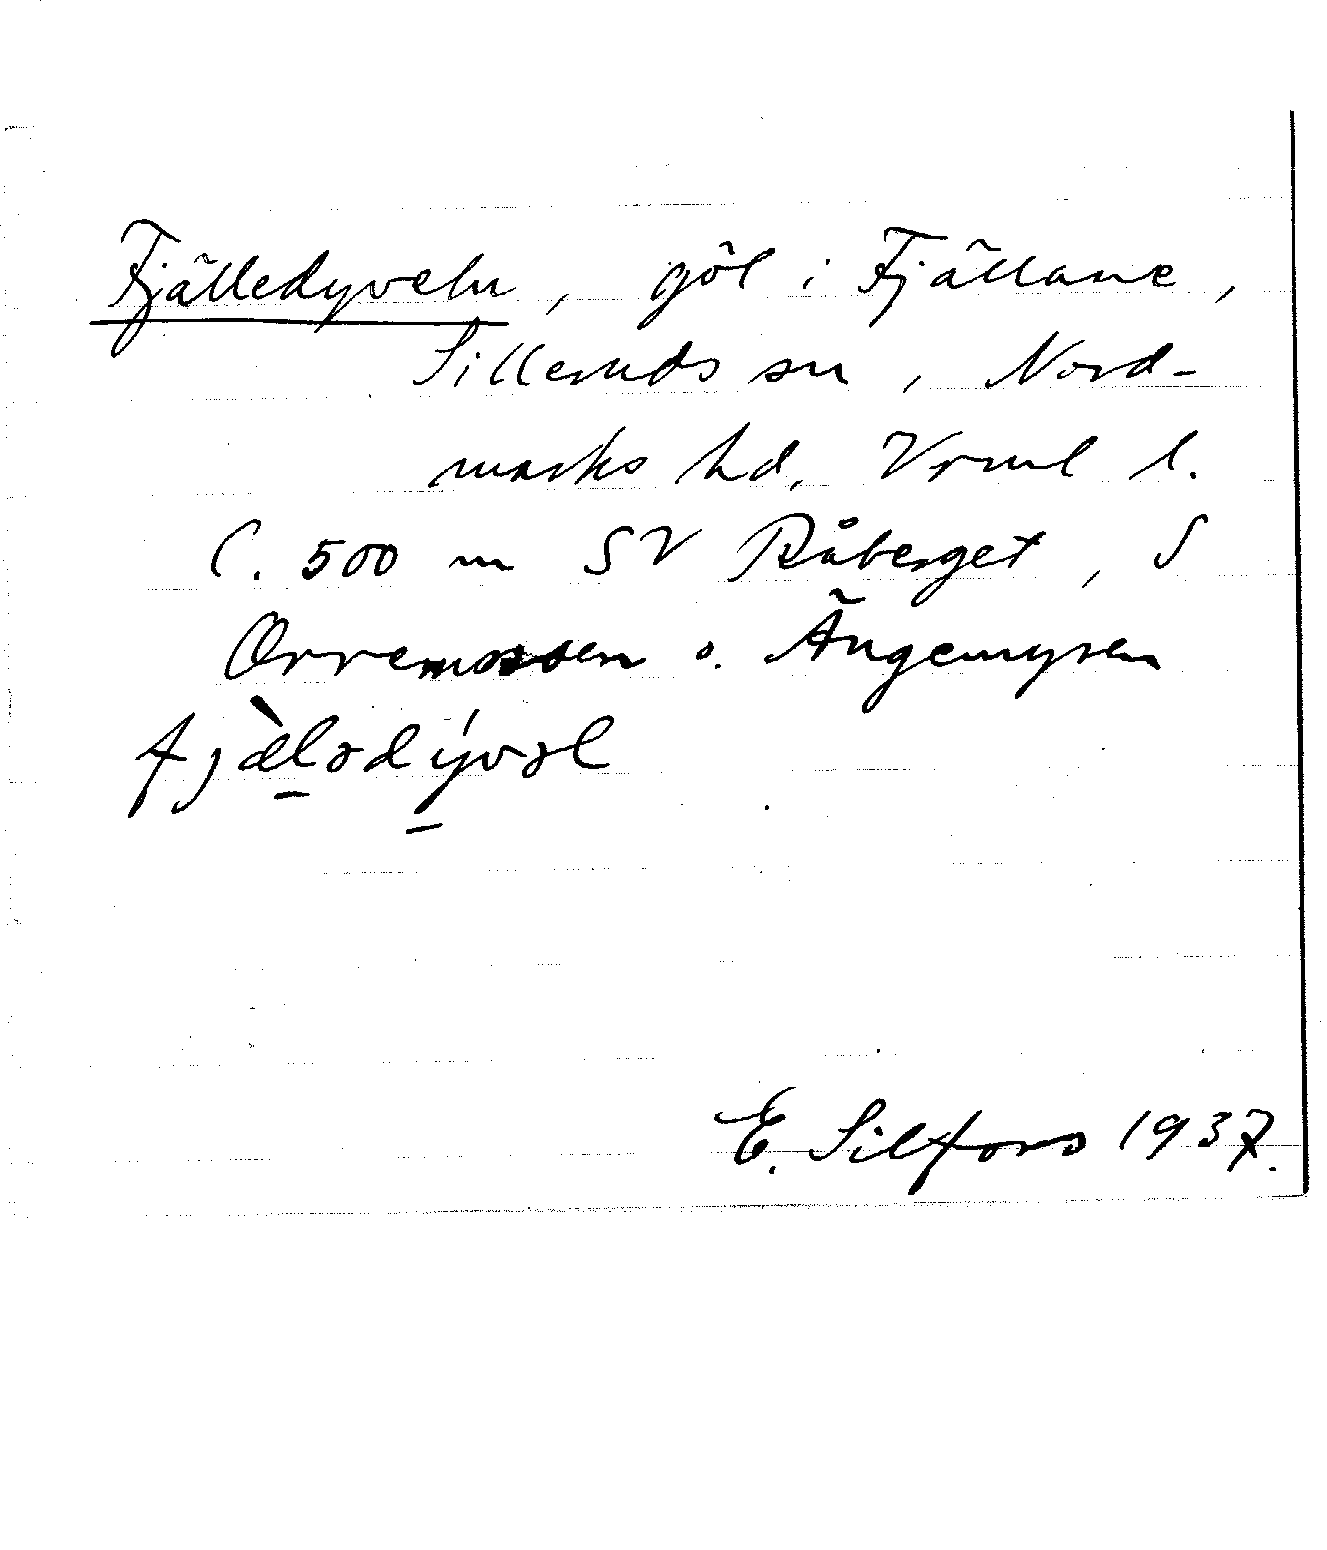 Fjälledyveln, göl i Fjällane,
Silleruds sn, Nord-
marks hd, Vrml l.
C. 500 m SV Råberget, S
Orremossen o. Ängemyren
fjæ̀lədývəl
E. Silfors 1937.